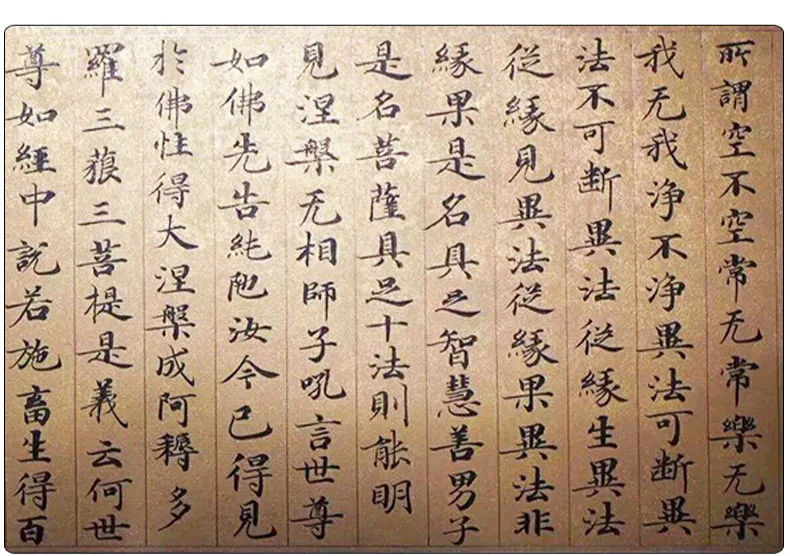 所謂空不空常无常樂无樂
我无我淨不淨異法可断異
法不可断異法從緣生異法
從緣見異法從緣果異法非
緣果是名具足智慧善男子
是名菩薩具足十法則能明
見涅槃无相師子吼言世尊
如佛先告純陁汝今已得見
於佛性得大涅槃成阿耨多
羅三藐三菩提是義云何世
尊如經中說若施畜生得百